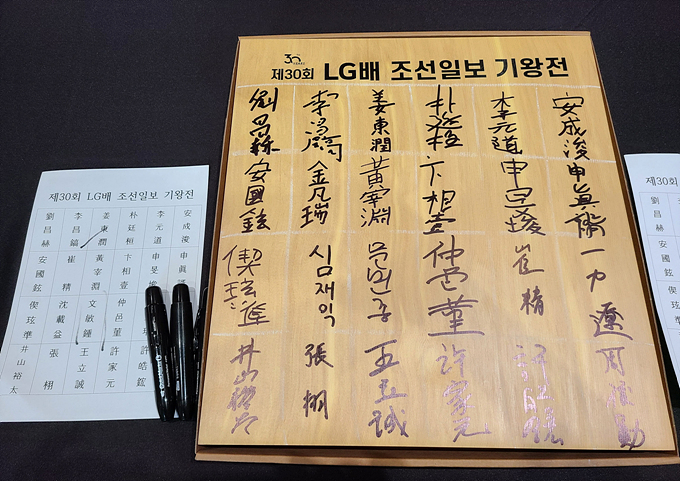 제30회 LG배 조선일보 기왕전
劉昌赫 李昌鎬 姜東潤 朴廷桓 李元道 安成浚
安國鉉 崔精 黃宰淵 卞相壹 申旻 申眞
偰玹準 沈載益 文敏鍾 仲邑菫
井山裕太 張栩 王立誠 許家元 許皓鋐
30 YEARS
제30회 LG배 조선일보 기왕전
劉昌赫 李昌鎬 姜東潤 朴廷桓 李元道 安成浚
安國鉉 金凡瑞 黃宰淵 卞相壹 申旻埈 申眞諝
偰玹準 심재익 문민종 仲邑菫 崔精 一力遼
井山裕太 張栩 王立誠 許家元 許皓鋐 周俊勳
제30회 L
劉昌赫
安國鉉